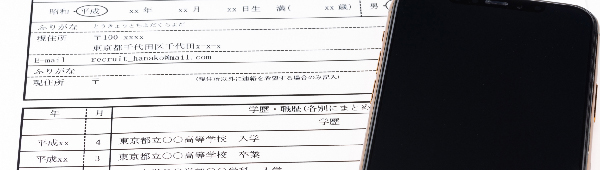 昭和 平成 xx 年 xx 月 xx 日生 満( xx 歳) 男
ふりがな とうきょうとちよだくちよだ
現住所 〒100 xxxx
東京都千代田区千代田x-x-x
E-mail recruit_hanako@mail.com
ふりがな
現住所 〒 (現住所以外に連絡を希望する場合のみ記入)
年 月 学歴・職歴(各別にまとめ
学歴
平成xx 4 東京都立〇〇高等学校 入学
平成xx 3 東京都立〇〇高等学校 卒業